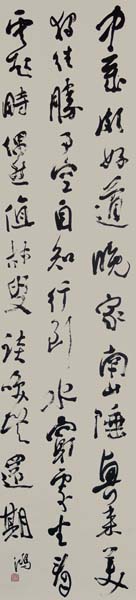 中歲頗好道晚家南山陲興來每
獨往勝事空自知行到水窮處坐看
雲起時偶然值林叟談笑無還期 鴻